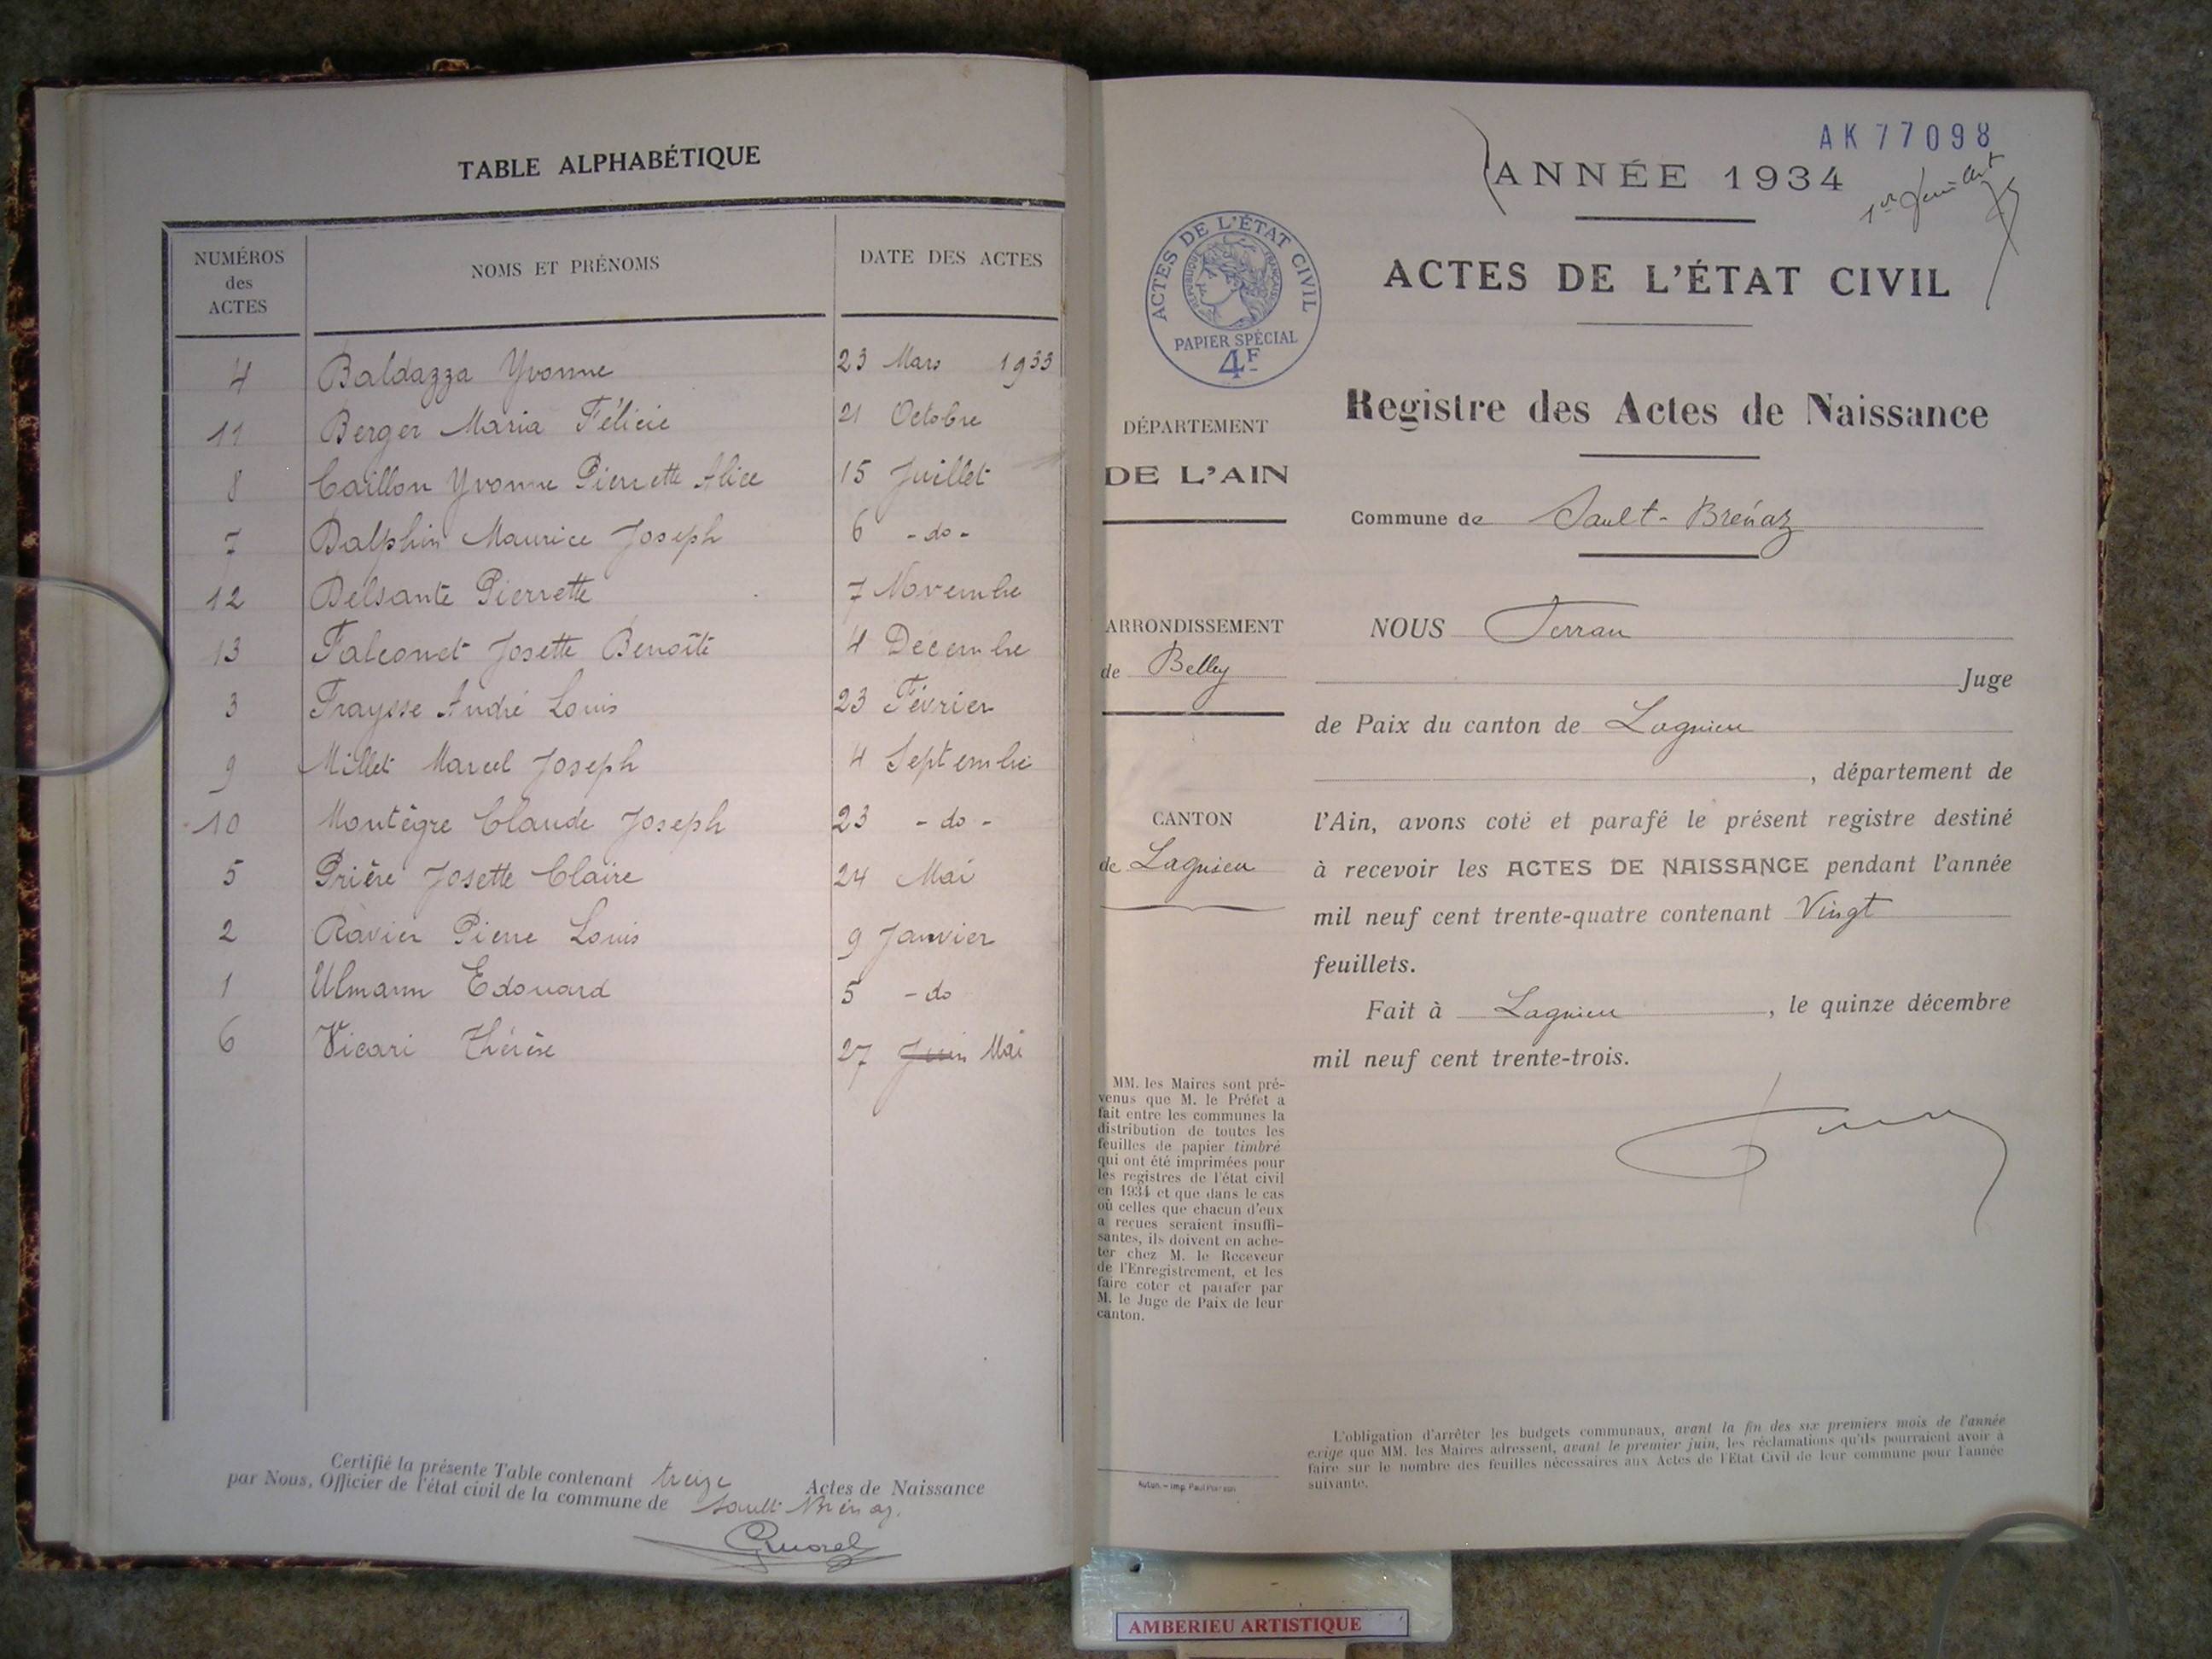 TABLE ALPHABÉTIQUE
NUMÉROS
des
ACTES
NOMS ET PRÉNOMS
DATE DES ACTES
4 Baldazza Yvonne 23 Mars 1933
11 Berger Maria Félicie 21 Octobre
8 Caillon Yvonne Pierrette Alice 15 Juillet
7 Dalphin Maurice Joseph 6 -do-
12 Delsante Pierrette 7 Novembre
13 Falconet Josette Benoîte 4 Décembre
3 Fraysse André Louis 23 Février
9 Millet Marcel Joseph 4 Septembre
10 Montègre Claude Joseph 23 -do-
5 Prière Josette Claire 24 Mai
2 Ravier Pierre Louis 9 Janvier
1 Ulmann Edouard 5 -do
6 Vicari Thérèse 27 Juin Mai
Certifié la présente Table contenant treize Actes de Naissance
par Nous, Officier de l'état civil de la commune de Sault-Brénaz.
AK 77098
ANNÉE 1934
1er feuillet
ACTES DE L'ÉTAT CIVIL
RÉPUBLIQUE FRANÇAISE
PAPIER SPÉCIAL
4F
ACTES DE L'ÉTAT CIVIL
Registre des Actes de Naissance
DÉPARTEMENT
DE L'AIN
Commune de Sault-Brénaz
ARRONDISSEMENT
de Belley
CANTON
de Lagnieu
NOUS Ferran
Juge
de Paix du canton de Lagnieu
, département de
l'Ain, avons coté et parafé le présent registre destiné
à recevoir les ACTES DE NAISSANCE pendant l'année
mil neuf cent trente-quatre contenant Vingt
feuillets.
Fait à Lagnieu, le quinze décembre
mil neuf cent trente-trois.
MM. les Maires sont pré-
venus que M. le Préfet a
fait entre les communes la
distribution de toutes les
feuilles de papier timbré
qui ont été imprimées pour
les registres de l'état civil
en 1934 et que dans le cas
où celles que chacun d'eux
a reçues seraient insuffi-
santes, ils doivent en ache-
ter chez M. le Receveur
de l'Enregistrement, et les
faire coter et parafer par
M. le Juge de Paix de leur
canton.
L'obligation d'arrêter les budgets communaux, avant la fin des six premiers mois de l'année
exige que MM. les Maires adressent, avant le premier juin, les réclamations qu'ils pourraient avoir à
faire sur le nombre des feuilles nécessaires aux Actes de l'Etat Civil de leur commune pour l'année
suivante.
Autun. – Imp. Paul
AMBERIEU ARTISTIQUE